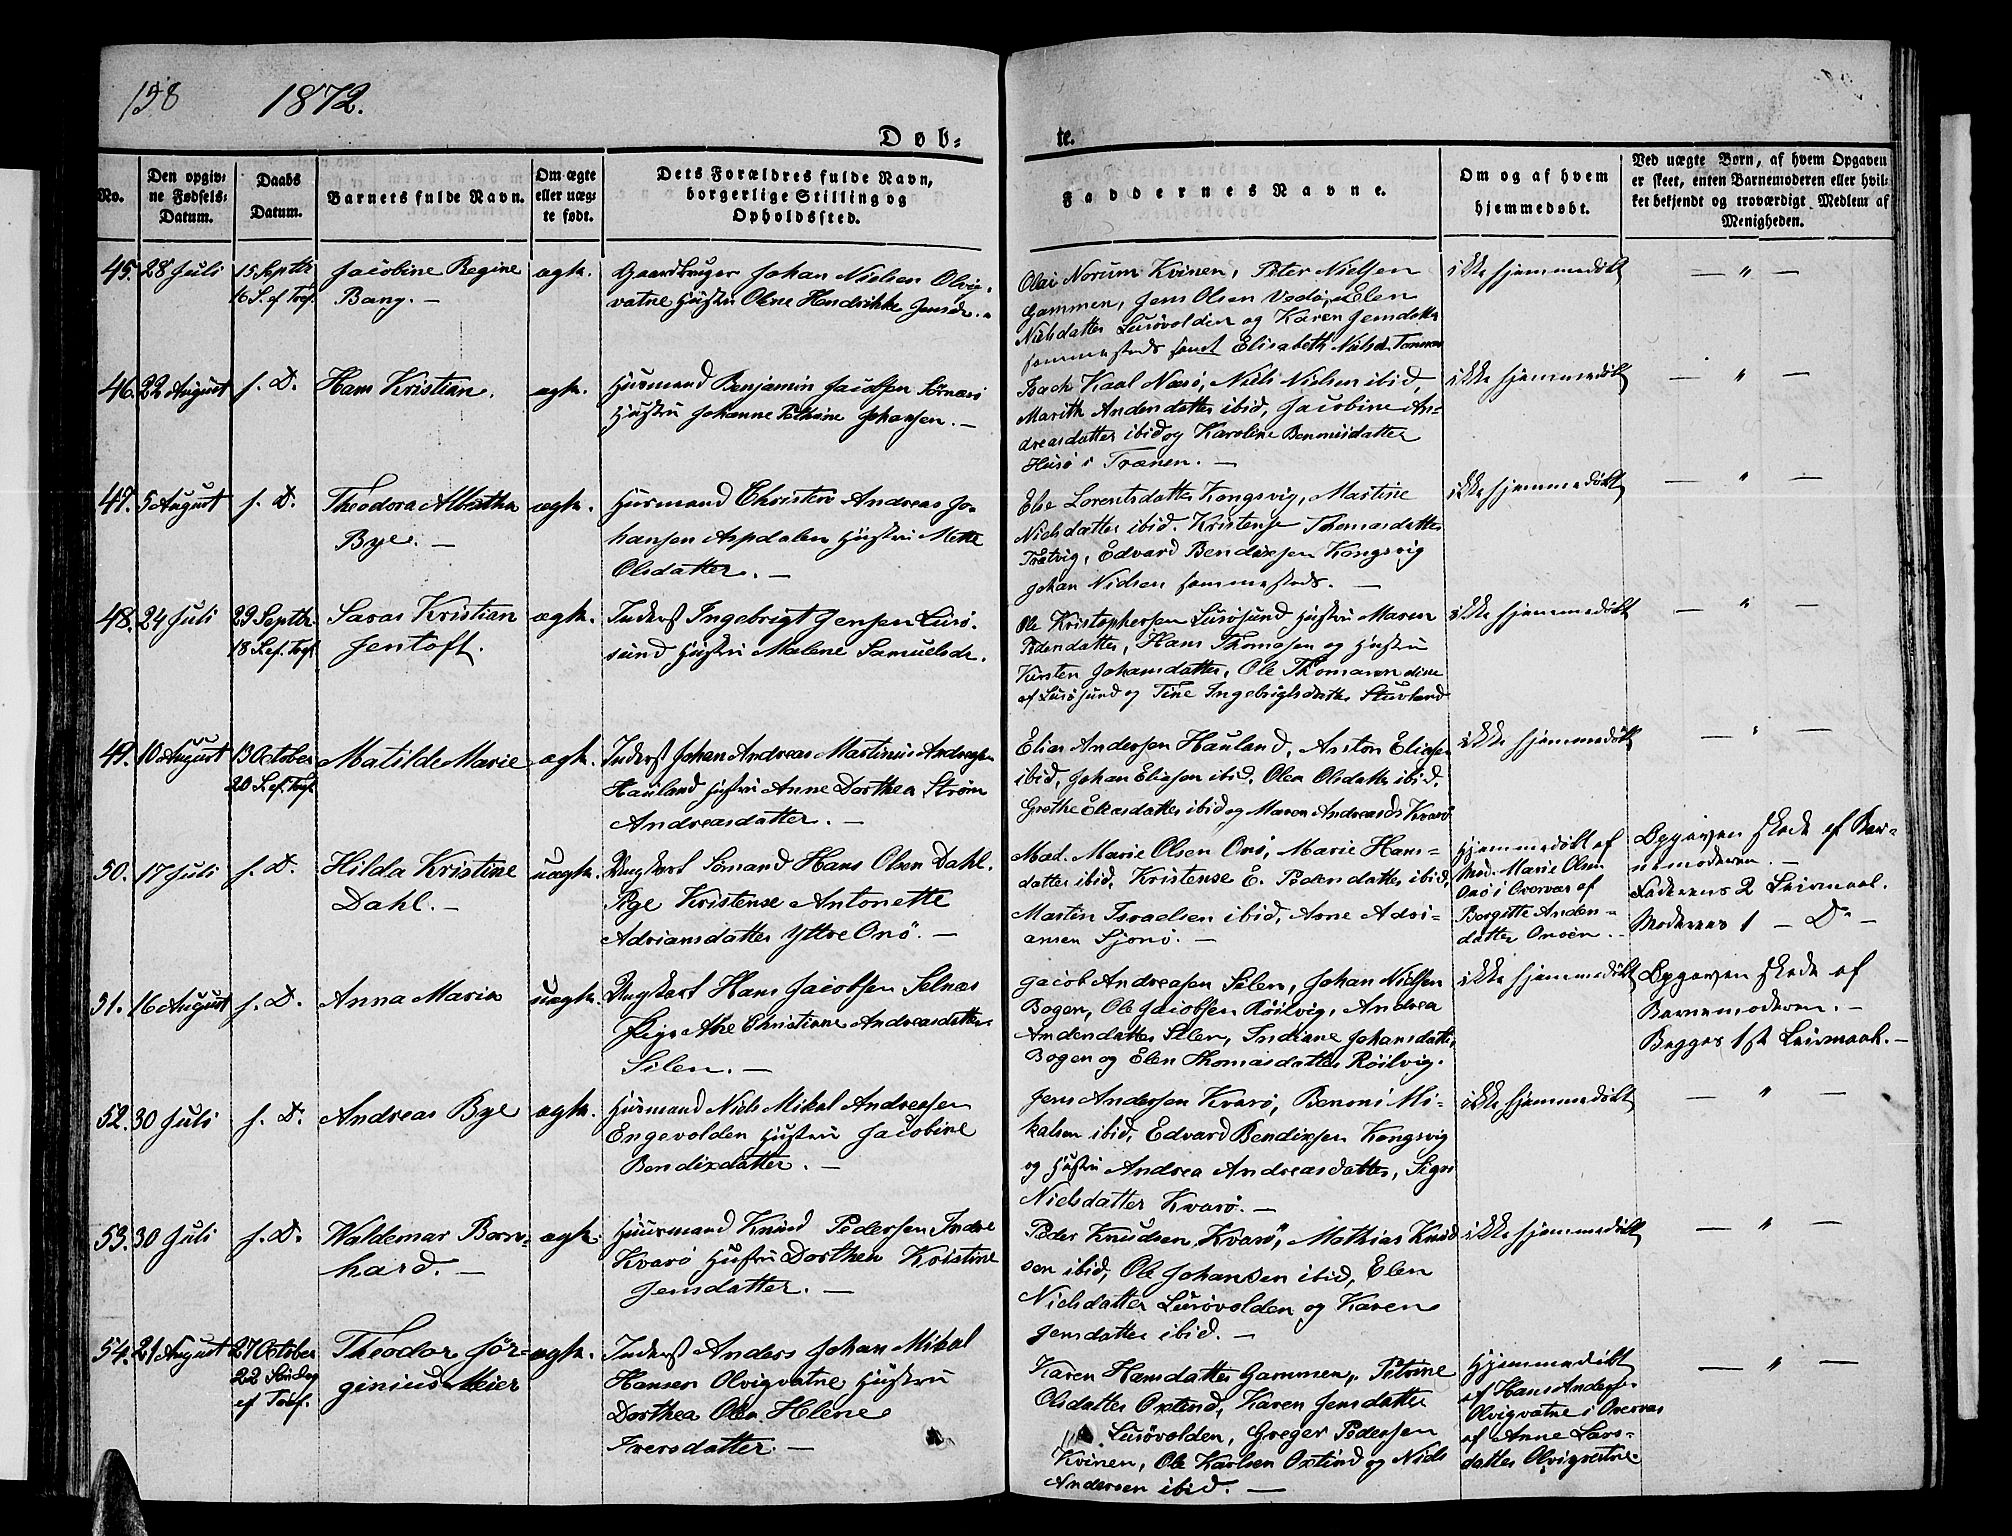 158 1872.
Døb-
te.
No.
Den opgiv-
ne Fødsels-
Datum.
Daabs
Datum.
Barnets fulde Navn.
Om ægte
eller uæg-
te født.
Dets Forældres fulde Navn,
borgerlige Stilling og
Opholdssted.
Faddernes Navne.
Om og af hvem
hjemmedøbt.
Ved uægte Born, af hvem Opgaven
er skeet, enten Barnemoderen eller hvil-
ket bekjendt og troværdigt Medlem af
Menigheden.
45. 28 Juli
15 Septbr
16 S. ef Tref.
Jacobine Regine
Bang. —
ægte.
Gaardbruger Johan Nielsen Olvig-
vatne Hustru Oline Hendrikke Jensdr.
Olai Norum Kvinen, Peter Nielsen
Gammen, Jens Olsen Vedø, Elen
Nielsdatter Lurøvolden og Karen Jensdatter
sammesteds samt Elisabeth Nielsd.
ikke hjemmedøbt
— " —
46. 22 August
s. D.
Hans Kristian.
ægte.
Husmand Benjamin Jacobsen Sørnæsø
Hustru Johanne Petrine Johansen. —
Bach Kaal Næsø, Niels Nielsen ibid,
Marith Andersdatter ibid, Jacobine An-
dreasdatter ibid og Karoline Benonisdatter
Husø i Trænen. —
ikke hjemmedøbt
— " —
47. 5 August
s. D.
Theodora Albertha
Bye. —
ægte.
Husmand Christen Andreas Jo-
hansen Aspdalen Hustru Mette
Olsdatter. —
Else Lorentsdatter Kongsvig, Martine
Nielsdatter ibid. Kristense Thomasdatter
Trætvig, Edvard Bendixsen Kongsvig
Johan Nielsen sammesteds. —
ikke hjemmedøbt
— " —
48. 24 Juli
29 Septbr.
18 S. ef. Tref.
Saras Kristian
Jentoft.
ægte.
Inderst Ingebrigt Jensen Lurø-
sund Hustru Malene Samuelsdr.
Ole Kristophersen Lurøsund Hustru Maren
Pedersdatter, Hans Thomasen og Hustru
Kirsten Johansdatter, Ole Thomasen
af Lurøsund og Tine Ingebrigtsdatter Stuvland
ikke hjemmedøbt
— " —
49. 10 August
13 October
20 S. ef. Tref.
Matilde Marie
ægte.
Inderst Johan Andreas Martinius Andreasen
Hauland Hustru Anne Dorthea Strøm
Andreasdatter. —
Elias Andersen Hauland, Anton Eliasen
ibid, Johan Eliasen ibid, Olea Olsdatter ibid.
Grethe Eliasdatter ibid og Maren Andreasd. Kvarø
ikke hjemmedøbt
— " —
50. 17 Juli
s. D.
Hilda Kristine
Dahl. —
uægte.
Ungkarl Sømand Hans Olsen Dahl.
Pige Kristense Antonette
Adriansdatter Yttre Onø. —
Mad. Marie Olsen Onø, Marie Hans-
datter ibid, Kristense E. Pedersdatter ibid,
Martin Israelsen ibid, Arne Adri-
ansen Sjonø. —
Hjemmedøbt af
Mad. Marie Olsen
Onø i Overvær af
Bergitte Anders-
datter Onøen. —
Opgaven skede af Bar-
nemoderen. —
Faderens 2 Leiermaal.
Moderens 1 — Do —
51. 16 August
s. D.
Anna Maria
uægte.
Ungkarl Hans Jacobsen Selnæs
Pige Ane Christiane Andreasdatter
Silen. —
Jacob Andreasen Silen, Johan Nielsen
Bogen, Ole Jacobsen Røilvig, Andrea
Andersdatter Silen, Indiane Johansdatter
Bogen og Elen Thomasdatter Røilvig.
ikke hjemmedøbt
Opgaven skede af
Barnemoderen. —
Begges 1st Leiermaal. —
52. 30 Juli
s. D.
Andreas Bye
ægte.
Husmand Niels Mikal Andreasen
Engevolden Hustru Jacobine
Bendixdatter. —
Jens Andersen Kvarø, Benoni Mi-
kalsen ibid, Edvard Bendixsen Kongsvig
og Hustru Andrea Andreasdatter, Signe
Nielsdatter Kvarø. —
ikke hjemmedøbt
— " —
53. 30 Juli
s. D.
Waldemar Bern-
hard. —
ægte.
Huusmand Knud Pedersen Indre
Kvarø Hustru Dorthea Kristine
Jensdatter. —
Peder Knudsen Kvarø, Mathias Knud-
sen ibid, Ole Johansen ibid, Elen
Nielsdatter Lurøvolden og Karen
Jensdatter ibid. —
ikke hjemmedøbt
— " —
54. 21 August
27 October
22 Søndag
ef Tref.
Theodor Jør-
ginius Meier
ægte.
Inderst Anders Johan Mikal
Hansen Olvigvatne Hustru
Dorthea Olea Helene
Iversdatter. —
Karen Hansdatter Gammen, Petrine
Olsdatter Oxtind, Karen Jensdatter
Lurøvolden, Greger Pedersen
Kvinen, Ole Karlsen Oxtind og Niels
Andersen ibid. —
Hjemmedøbt
af Hans Anders.
Olvigvatne i Overvær
af Anne Lars-
datter Olvigvatne.
— " —